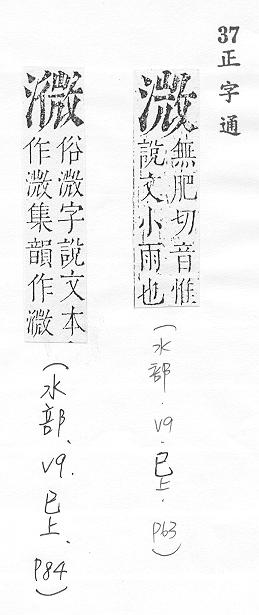 37正字通
溦
無肥切音惟
說文小雨也
(水部.V9.巳上.P63)
俗溦字說文本
作溦集韻作溦
(水部、V9.巳上、P84)